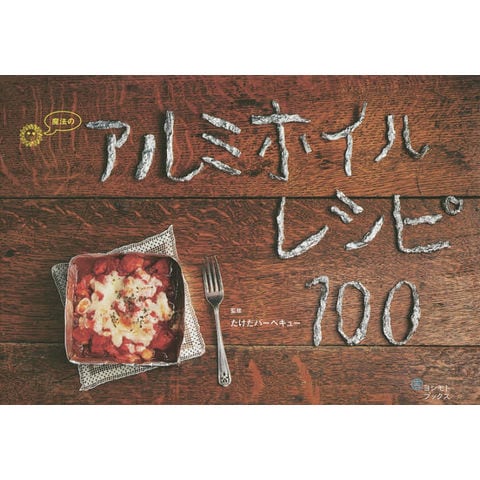 魔法の
アルミホイル
レシピ
100
監修
たけだバーベキュー
ヨシモト
ブックス